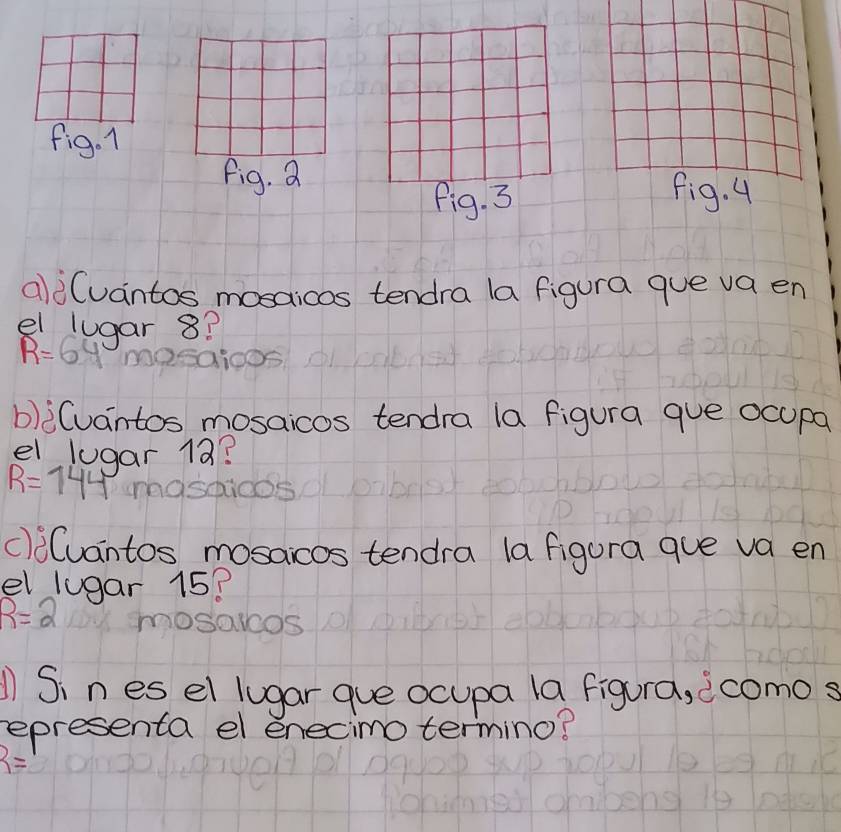 fig.1
fig.2
fig.3
fig.4
a)¿Cuántos mosaicos tendra la figura que va en
el lugar 8?
R=64 mosaicos
b)¿Cuántos mosaicos tendra la figura que ocupa
el lugar 12?
R=144 mosaicos
c)¿Cuántos mosaicos tendra la figura que va en
el lugar 15?
R=2 mosaicos
d) Si n es el lugar que ocupa la figura, ¿como s
representa el enecimo termino?
R=